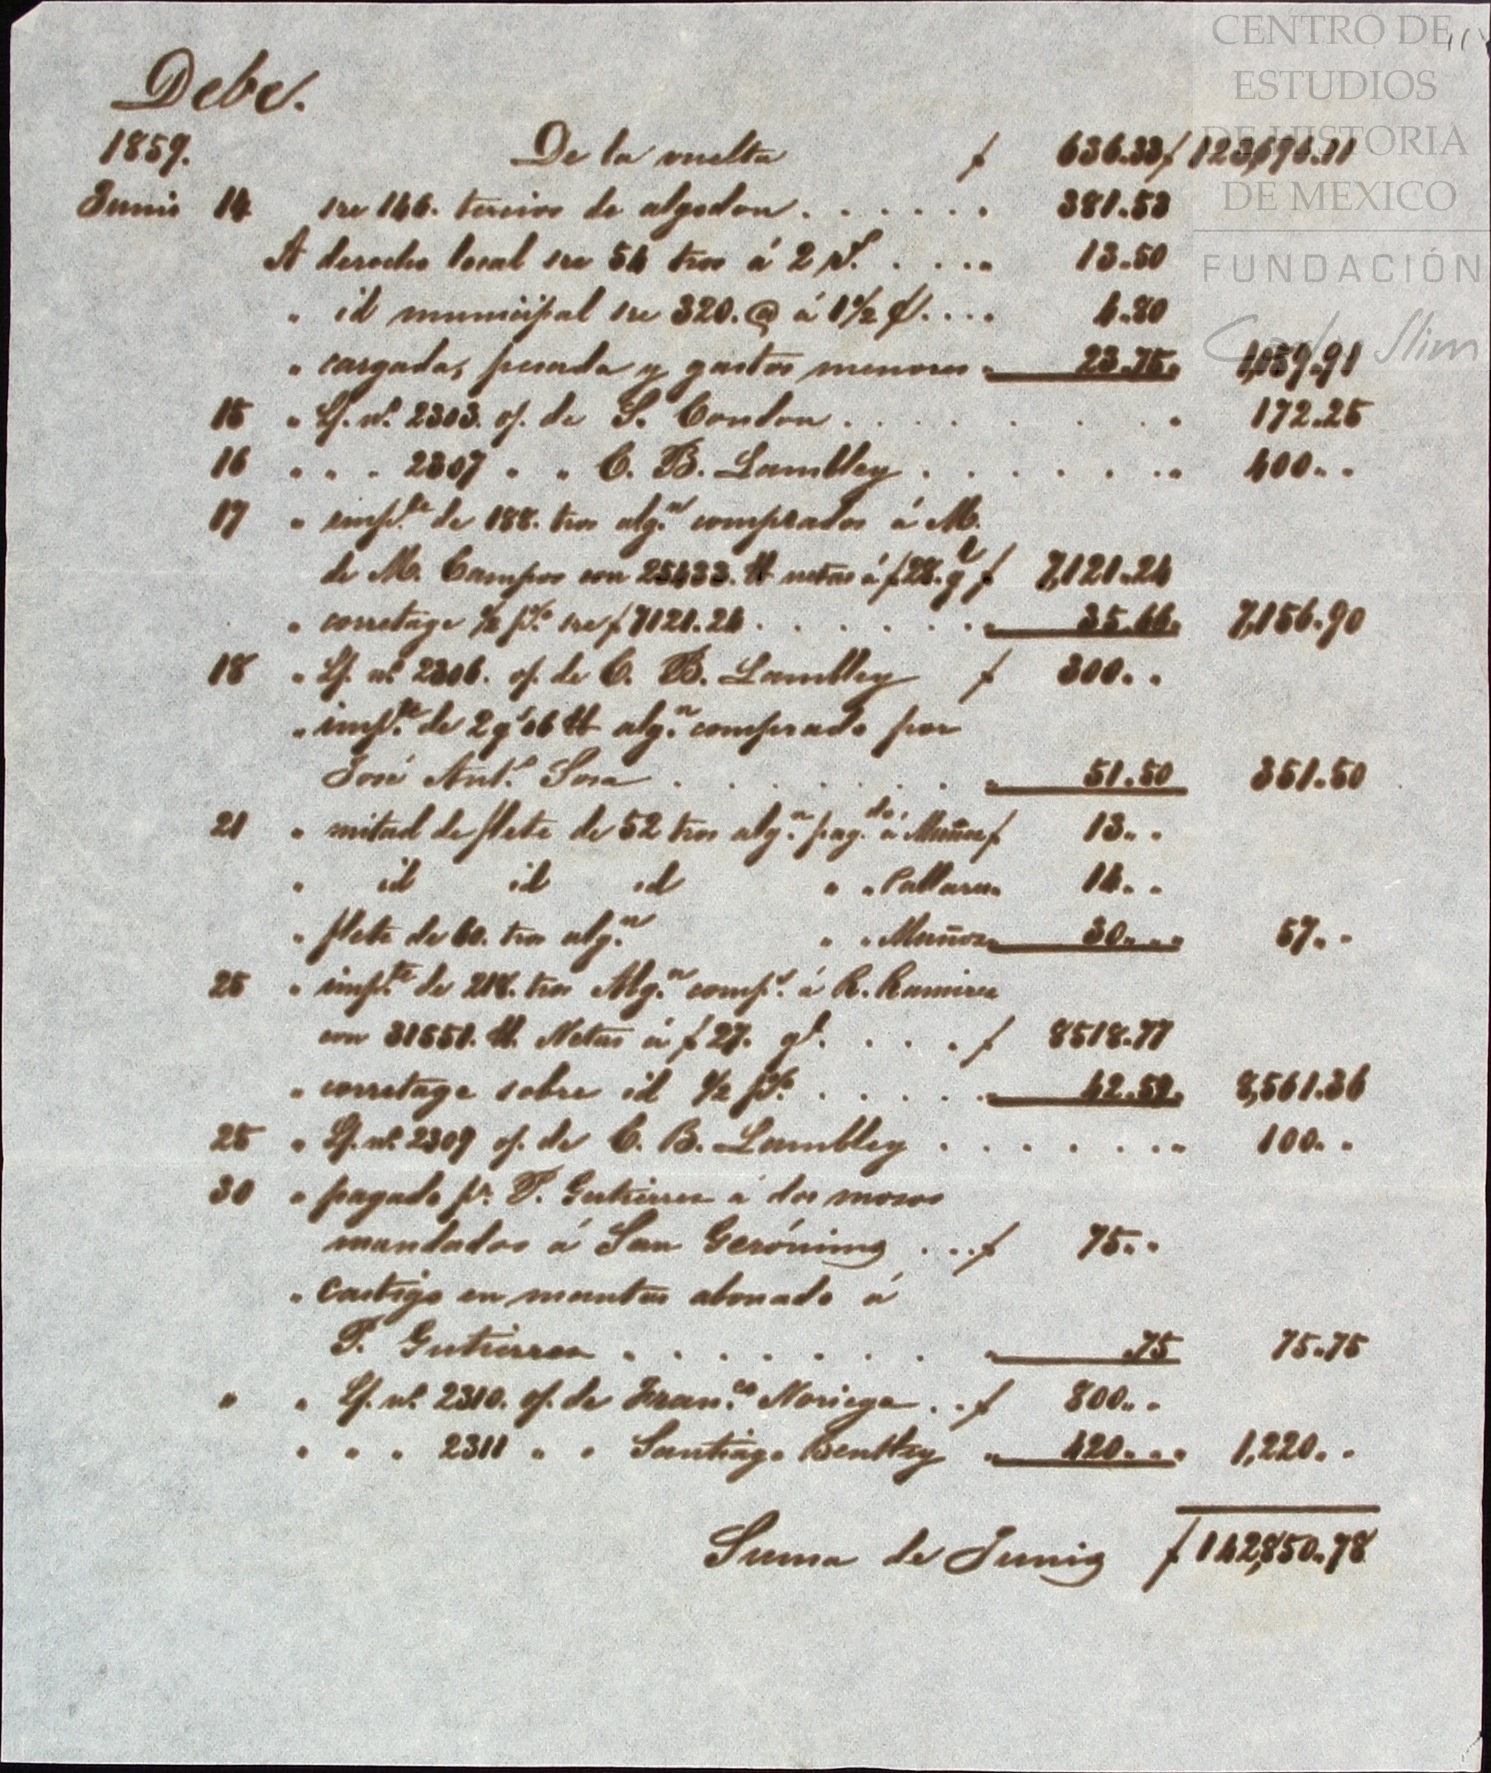 CENTRO DE
ESTUDIOS
DE HISTORIA
DE MEXICO
FUNDACIÓN
Carlos Slim
Debe.
1859. De la vuelta $ 636.33 $ 123,696.11
Junio 14 sre 146. tercios de algodon . . . . . . 381.53
A derecho local sre 54 tros á 2 rs. . . . . 13.50
" id municipal sre 320. @ á 1 1/2 ¢. . . . 4.80
" cargada, pesada y gastos menores " 23.75. 1,059.91
15 " Lf. nº 2303. of. de S. Condon . . . . . . . " 172.25
16 " " " 2307 " " C. B. Lambley . . . . . . " 400 " "
17 " imp.te de 188. tros alg.n comprados á M.
de M. Campos con 25433. lb netas á $28. ql $ 7,121.24
" corretage 1/2 p% sre $7121.24 . . . . . . " 35.66. 7,156.90
18 " Lf. nº 2306. of. de C. B. Lambley $ 300 " "
" imp.te de 2 qs 06 lb alg.n comprado por
José Ant.º Sosa . . . . . . . " 51.50 351.50
21 " mitad de flete de 52 tros alg.n pag.do á Muñoz $ 13 " "
" id id id " " Pallares " 14 " "
" flete de 60. tros alg.n " " Muñoz " 30 " " 57 " "
25 " imp.te de 218. tros Alg.n comp.s á R. Ramirez
con 31551. lb. Netas á $27. ql. . . . . $ 8518.77
" corretage sobre id 1/2 p% . . . . . " 42.59. 8,561.36
25 " Lf. nº 2309 of. de C. B. Lambley . . . . . . " 100 " "
30 " pagado pr. P. Gutierrez á dos mosos
mandados á San Gerónimo . . . $ 75 " "
" castigo en mantas abonado á
P. Gutierrez . . . . . . . " .75 75.75
" " Lf. nº 2310. of. de Fran.co Noriega . . $ 800 " "
" " " 2311 " " Santiago Bentley " 420 " " 1,220 " "
Suma de Junio $ 142,850.78